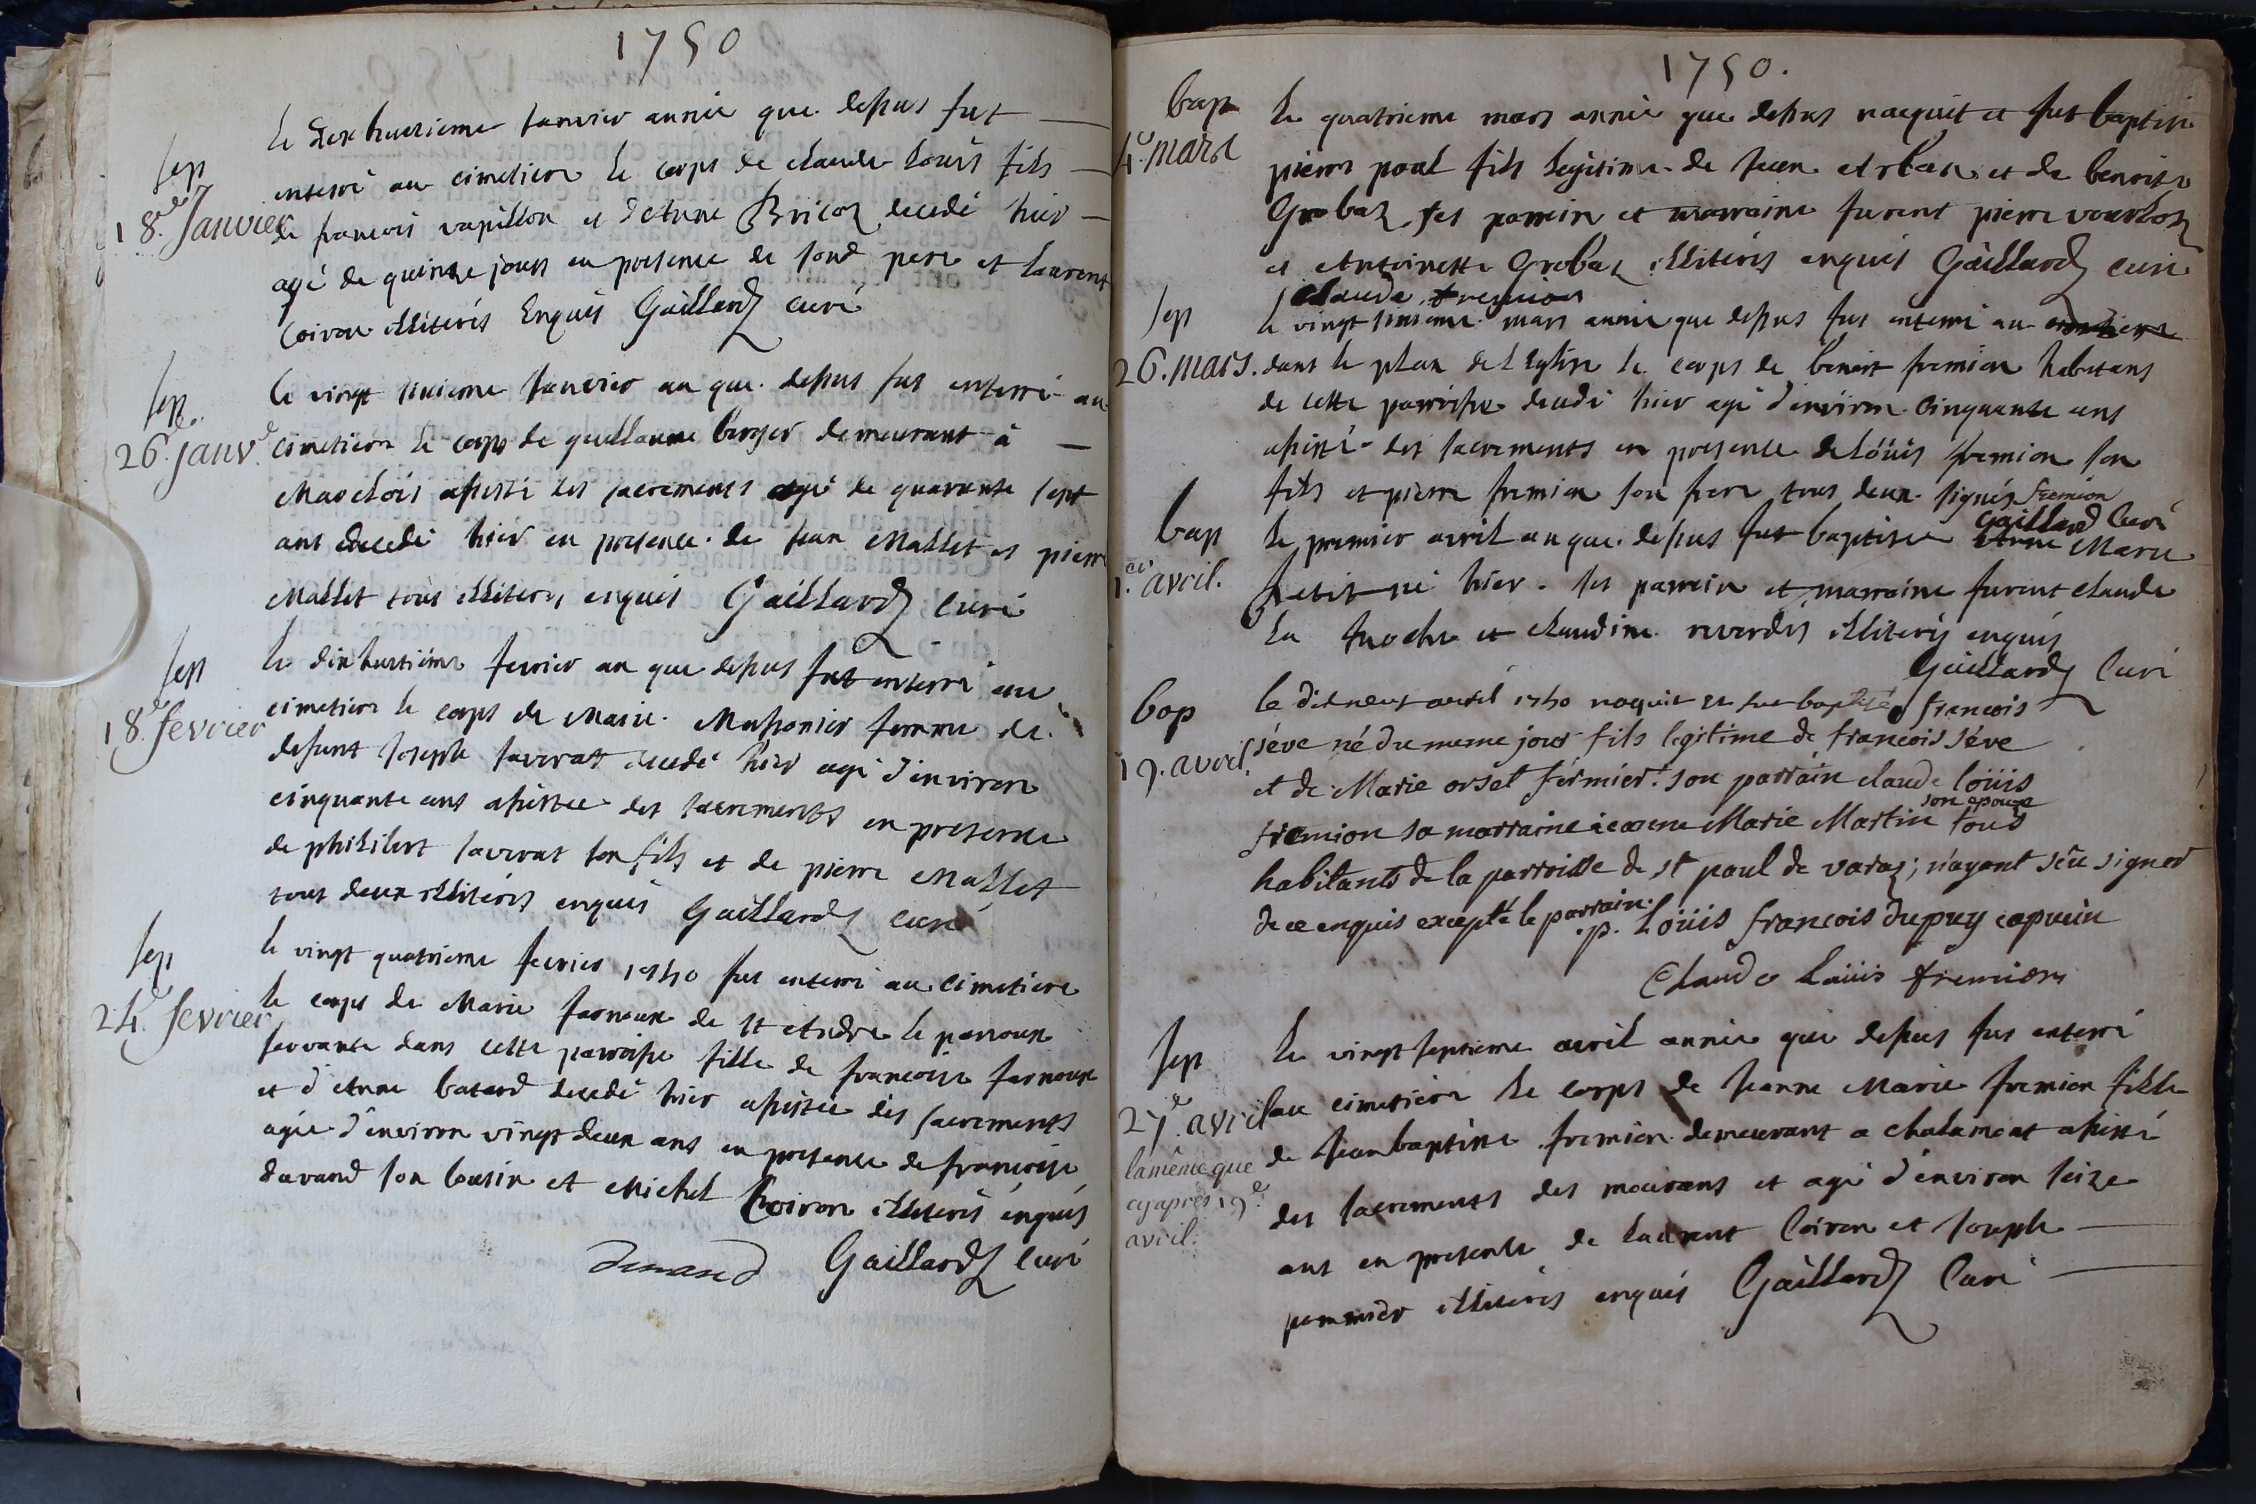 1750
Sep
18.e Janvier
Le Dixhuitieme Janvier année que dessus fut
enterré au cimetiere le corps de claude Louis fils
de francois papillon et d'Anne Bricoz decedé hier
agé de quinze jours en presence de sond pere et Laurent
Coiron illiterés Enquis Gaillard curé
Sep
26.e janv.e
Le vingt sixieme Janvier an que dessus fut enterré au
cimetiere le corps de guillaume berger demeurant à
Marclois assisté des sacrements agé de quarante sept
ans decedé hier en presence de Jean Mallet et pierre
Mallet tous illiterés enquis Gaillard Curé
Sep
18.e fevrier
Le dixhuitiéme fevrier an que dessus fut enterré au
cimetiere le corps de Marie Massonier femme de
defunt Joseph saverat decedé hier agé d'environ
cinquante ans assistée des sacrements en presence
de philibert saverat son fils et de pierre Mallet
tout deux illiterés enquis Gaillard curé
Sep
24.e fevrier
le vingt quatrieme fevrier 1750 fut enterré au cimetiere
le corps de Marie farnoux de st Andre le panoux
servante dans cette parroisse fille de francoise farnoux
et d'Anne batard decedé hier assistée des sacrements
agée d'environ vingt deux ans en presence de francoise
davand son cousin et Michel Coiron illiterés enquis
Gaillard Curé
1750.
bap
4.e mars
Le quatrieme mars année que dessus naquit et fut baptisé
pierre poal fils legitime de Jean et de benoite
Grobaz ses parrein et marraine furent pierre
et Antoinette Grobaz illiterés enquis Gaillard curé
Claude fremion
Sep
26. mars.
le vingt sixieme mars année que dessus fut enterré au cimetiere
dans le plan de l'Eglise le corps de benoit fremion habitans
de cette parroisse decedé hier agé d'environ cinquante ans
assisté des sacrements en presence de Loüis fremion son
fils et pierre fremion son frere tous deux signés fremion
Gaillard Curé
bap
1.er avril.
Le premier avril an que dessus fut baptisee Anne Marie
petit né hier. ses parrein et marraine furent claude
La troche et claudine reverdis illiterés enquis
Gaillard Curé
bap
19. avril.
le dixneuf avril 1750 naquit et fut baptisé francois
séve né du meme jour fils legitime de francois séve
et de Marie orset férmier: son parrain claude loüis
fremion sa marraine jeanne Marie Martin son epouse tous
habitants de la parroisse de st paul de varaz; n'ayant sçu signer
de ce enquis excepté le parrain. p. Loüis francois dupuy capucin
Claude Loüis fremion
Sep
27.e avril
la même que
cy apres 19.e
avril.
Le vingt septieme avril année que dessus fut enterré
au cimetiere le corps de Jeanne Marie fremion fille
de Jean baptiste fremion demeurant a chalamont assisté
des sacrements des mourans et agé d'environ seize
ans en presence de Laurent Coiron et Joseph
pommier illiterés enquis Gaillard Curé